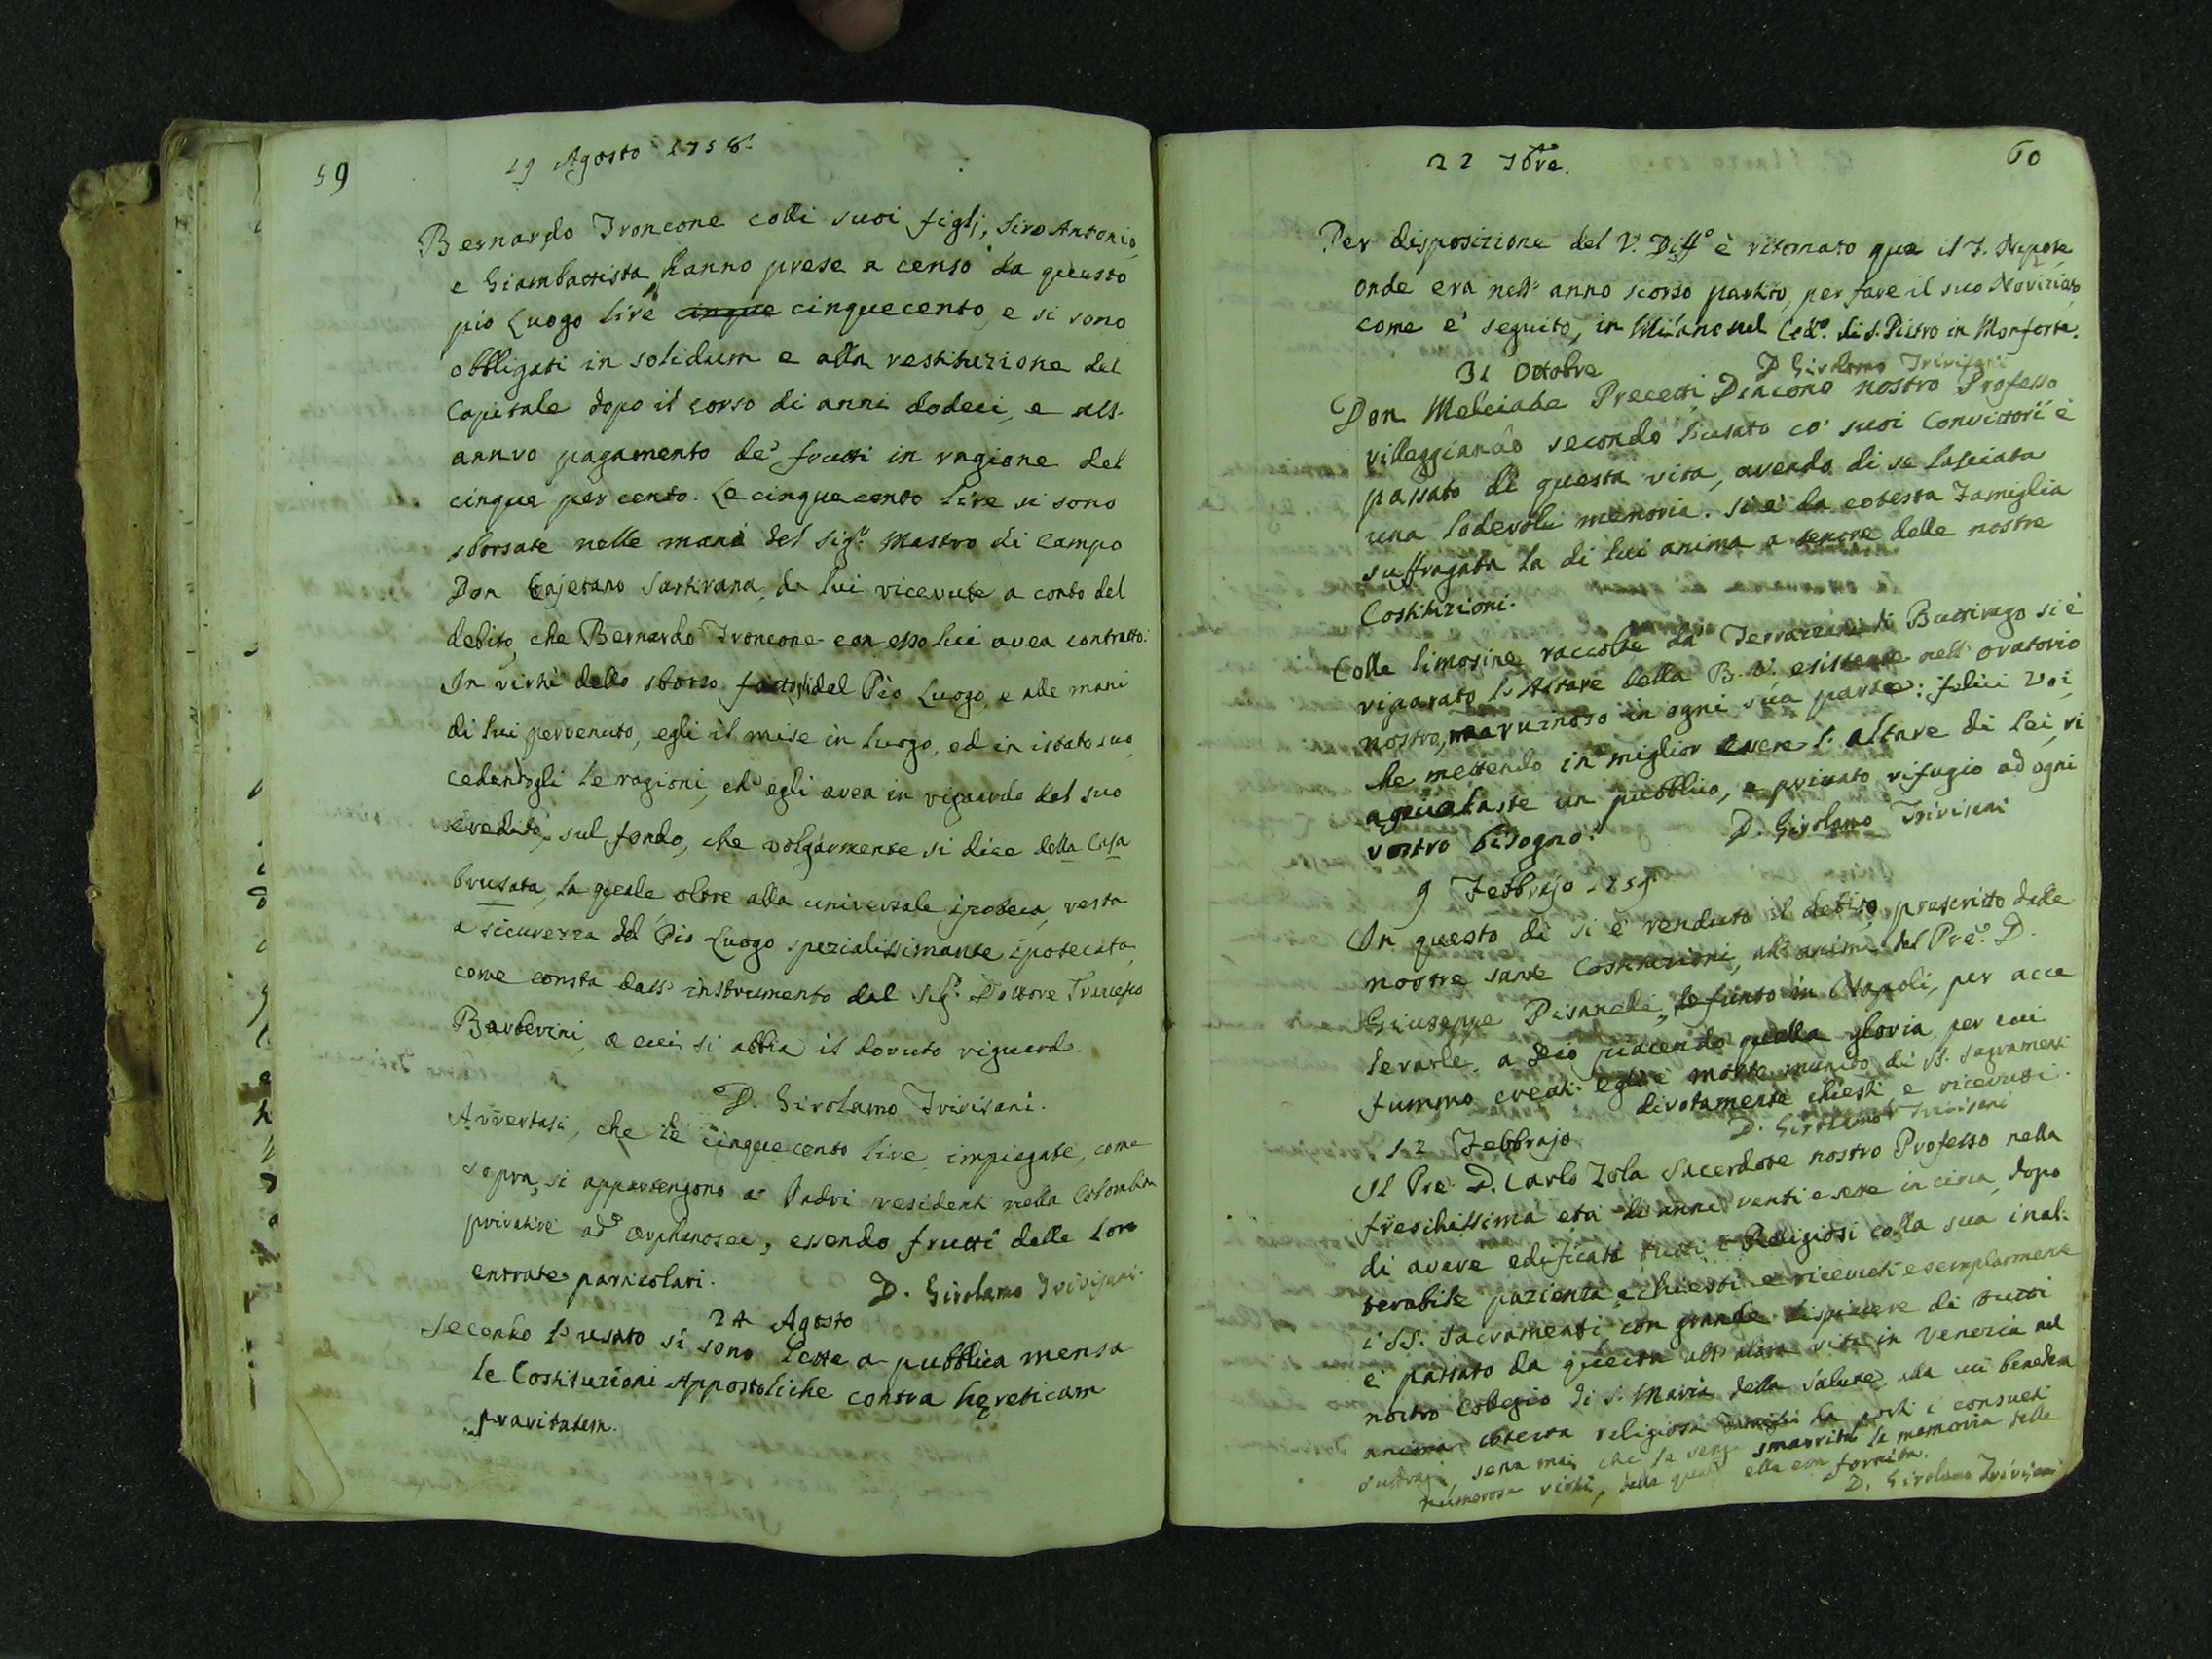 59
19 Agosto 1758.
Bernardo Troncone colli suoi figlj, Siro Antonio,
e Giambattista hanno prese a censo da questo
pio Luogo lire cinque cinquecento, e si sono
obbligati in solidum e alla restituzione del
Capitale dopo il corso di anni dodeci, e all'
annuo pagamento de' frutti in ragione del
cinque per cento. Le cinquecento lire si sono
sborsate nelle mani del Sig.r Mastro di Campo
Don Gajetano Sartirana, da lui ricevute a conto del
debito, che Bernardo Troncone con esso lui avea contratto.
In virtù dello sborso fattogli dal Pio Luogo, e alle mani
di lui pervenuto, egli il mise in luogo, ed in istato suo
cedendogli le ragioni, ch' egli avea in riguardo del suo
credito, sul fondo, che volgarmente si dice della Casa
brusata, la quale oltre alla universale ipoteca, resta
a sicurezza del Pio Luogo spezialissimamente ipotecata,
come consta dall' instrumento del Sig.r Dottore Francesco
Barberini, a cui si abbia il dovuto riguardo.
D. Girolamo Trivisani.
Avvertasi, che le cinquecento lire impiegate, come
sopra, si appartengono a' Padri residenti nella Colombina
privative ad Orphanos, essendo frutti delle loro
entrate particolari.
D. Girolamo Trivisani.
24 Agosto
Secondo l' usato si sono lette a pubblica mensa
le Costituzioni Appostoliche contra hęreticam
pravitatem.
60
22 7bre.
Per disposizione del V. Diff.o è ritornato qua il F. Nipote,
onde era nell' anno scorso partito, per fare il suo Noviziato,
come è seguito, in Milano nel Coll.o di S. Pietro in Monforte.
D Girolamo Trivisani
31 Ottobre
Don Melciade Precetti Diacono nostro Professo
villeggiando secondo l'usato co' suoi Convittori è
passato di questa vita, avendo di se lasciata
una lodevole memoria. Si è da cotesta Famiglia
suffragata la di lui anima a tenore delle nostre
Costituzioni.
Colle limosine raccolte da' Terrazzani di Buttirago si è
riparato l'Altare della B. V. esistente nell' oratorio
nostro, ruinoso in ogni sua parte: felici voi,
che mettendo in miglior essere l' altare di lei, vi
aguataste un pubblico, e privato rifugio ad ogni
vostro bisogno.
D. Girolamo Trivisani
9 Febbrajo 1759
In questo dì si è renduto il debito, prescritto dalle
nostre sante Costituzioni, all' anima del Pre. D.
Giuseppe Pisanelli, defunto in Napoli, per acce
lerarle, a Dio piacendo quella gloria per cui
fummo creati. Egli è morto munito di SS. Sagramenti
divotamente chiesti e ricevuti.
D. Girolamo Trivisani
12 Febbrajo
Il Pre D. Carlo Zola Sacerdote nostro Professo nella
freschissima età di anni venti e sette in circa, dopo
di avere edificati tutti i Religiosi colla sua inal-
terabile pazienza, e chiesti e ricevuti esemplarmente
i SS. Sacramenti, con grande dispiacere di tutti
è passato da questa all' altra vita in Venezia nel
nostro Collegio di S. Maria della Salute, alla cui benedetta
anima cotesta religiosa Famiglia ha porti i consueti
suffragi, senza mai che le venga smarrita la memoria delle
numerose virtù, delle quali ella era fornita.
D. Girolamo Trivisani